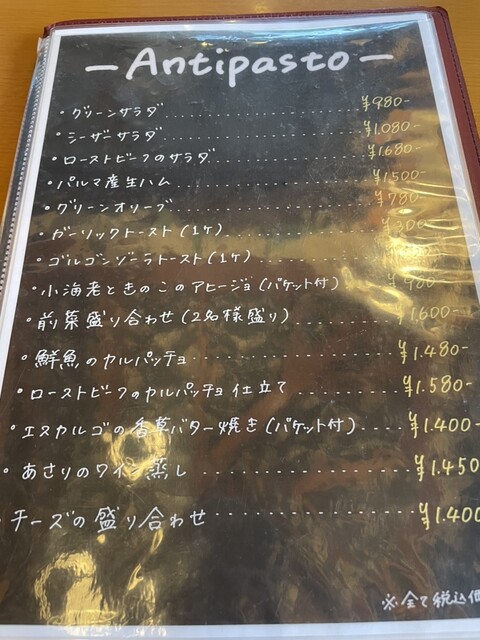 －Antipasto－
・グリーンサラダ..................¥980-
・シーザーサラダ..................¥1.080-
・ローストビーフのサラダ..................¥1.680-
・パルマ産生ハム..................¥1500-
・グリーンオリーブ..................¥780-
・ガーリックトースト(1ケ)..................¥300-
・ゴルゴンゾーラトースト(1ケ)..................
・小海老ときのこのアヒージョ(バケット付)
・前菜盛り合わせ(2名様盛り)..................¥1,600-
・鮮魚のカルパッチョ..................¥1.480-
・ローストビーフのカルパッチョ仕立て..................¥1.580-
・エスカルゴの香草バター焼き(バケット付)..................¥1.400-
・あさりのワイン蒸し..................¥1.450
・チーズの盛り合わせ..................¥1.400
※全て税込価